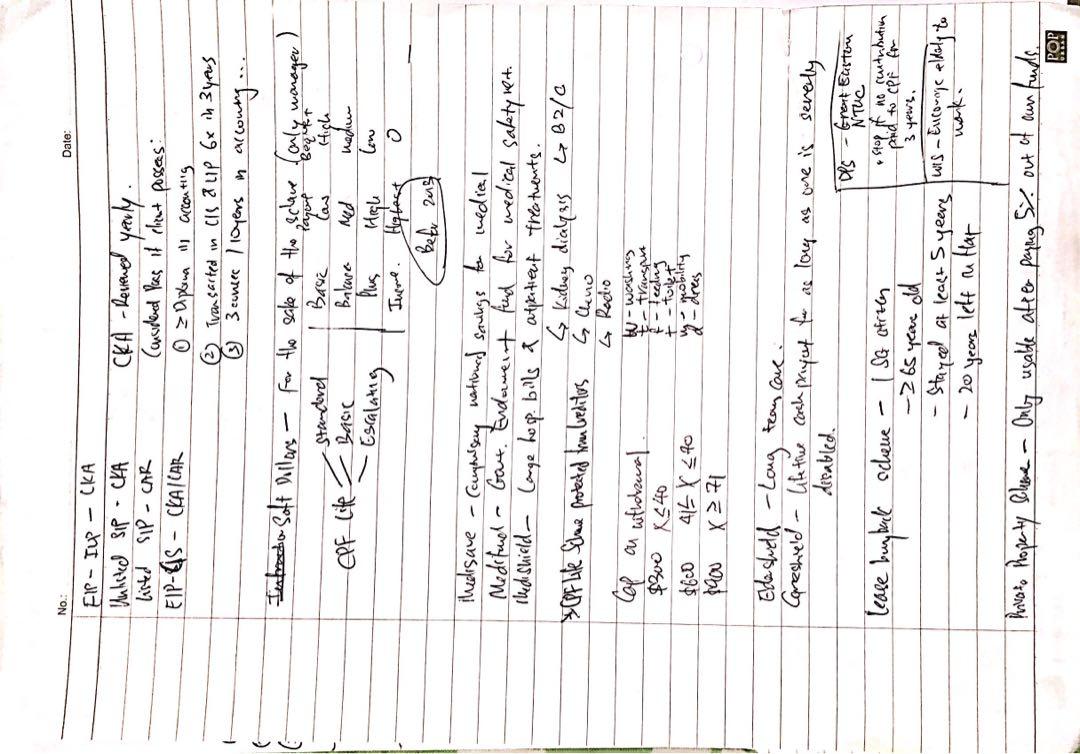 No.:
Date:
EIP - ILP - CKA
Unlisted SIP - CKA
Listed SIP - CAR
EIP- CIS - CKA/CAR
CKA - Reviewed yearly.
Considered Pass if client posses:
① ≥ Diploma in accounting
② Transacted in CIS & ULP 6x in 3 years
③ 3 consec / 10 years in accounting ...
Soft Dollars - For the sake of the scheme (only manager)
CPF Life
Standard
Basic
Escalating
Payout Bequest
Basic Low High
Balance Med Medium
Plus High Low
Income. Highest 0
Befr 2013
Medisave - Compulsory national savings for medical
Medifund - Govt. Endowment fund for medical safety net.
Medishield - Large hosp. bills & outpatient treatments.
↳ Kidney dialysis ↳ B2/C
↳ Chemo
↳ Radio
CPF Life Scheme protected from creditors
Cap on withdrawal.
$300 X ≤ 40
$600 41 ≤ X ≤ 70
$900 X ≥ 71
W - washing
t - transport
f - feeding
t - toilet
m - mobility
d - dress
Eldershield - Long term care.
Careshield - Lifetime cash payout for as long as one is severely
disabled.
DPS - Great Eastern
NTUC
• stop if no contribution
paid to CPF for
3 years.
WIS - Encourage elderly to
work.
Lease buyback scheme - 1 SG citizen
- ≥ 65 years old
- Stayed at least 5 years
- 20 years left in flat
Private Property Scheme - Only usable after paying 5% out of own funds.
POP